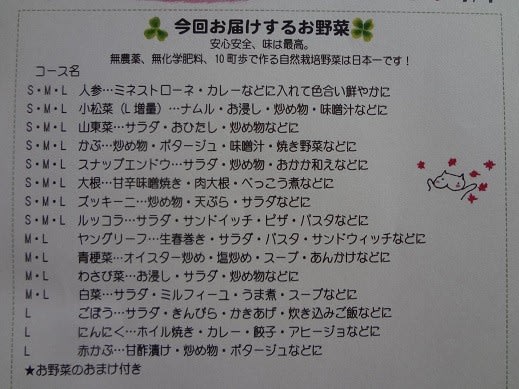 今回お届けするお野菜
安心安全、味は最高。
無農薬、無化学肥料、10町歩で作る自然栽培野菜は日本一です！
コース名
S・M・L 人参…ミネストローネ・カレーなどに入れて色合い鮮やかに
S・M・L 小松菜（L増量）…ナムル・お浸し・炒め物・味噌汁などに
S・M・L 山東菜…サラダ・おひたし・炒め物などに
S・M・L かぶ…炒め物・ポタージュ・味噌汁・焼き野菜などに
S・M・L スナップエンドウ…サラダ・炒め物・おかか和えなどに
S・M・L 大根…甘辛味噌焼き・肉大根・べっこう煮などに
S・M・L ズッキーニ…炒め物・天ぷら・サラダなどに
S・M・L ルッコラ…サラダ・サンドイッチ・ピザ・パスタなどに
M・L ヤングリーフ…生春巻き・サラダ・パスタ・サンドウィッチなどに
M・L 青梗菜…オイスター炒め・塩炒め・スープ・あんかけなどに
M・L わさび菜…お浸し・サラダ・炒め物などに
M・L 白菜…サラダ・ミルフィーユ・うま煮・スープなどに
L ごぼう…サラダ・きんぴら・かきあげ・炊き込みご飯などに
L にんにく…ホイル焼き・カレー・餃子・アヒージョなどに
L 赤かぶ…甘酢漬け・炒め物・ポタージュなどに
★お野菜のおまけ付き